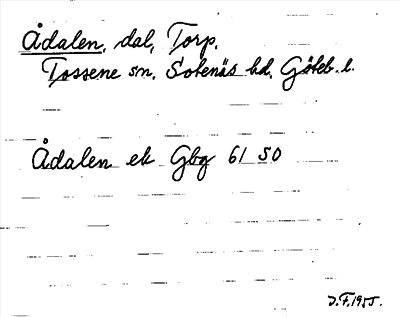 Ådalen, dal, Torp,
Tossene sn, Sotenäs hd, Göteb. l.
Ådalen ek Gbg 61 50
D.F. 1955.